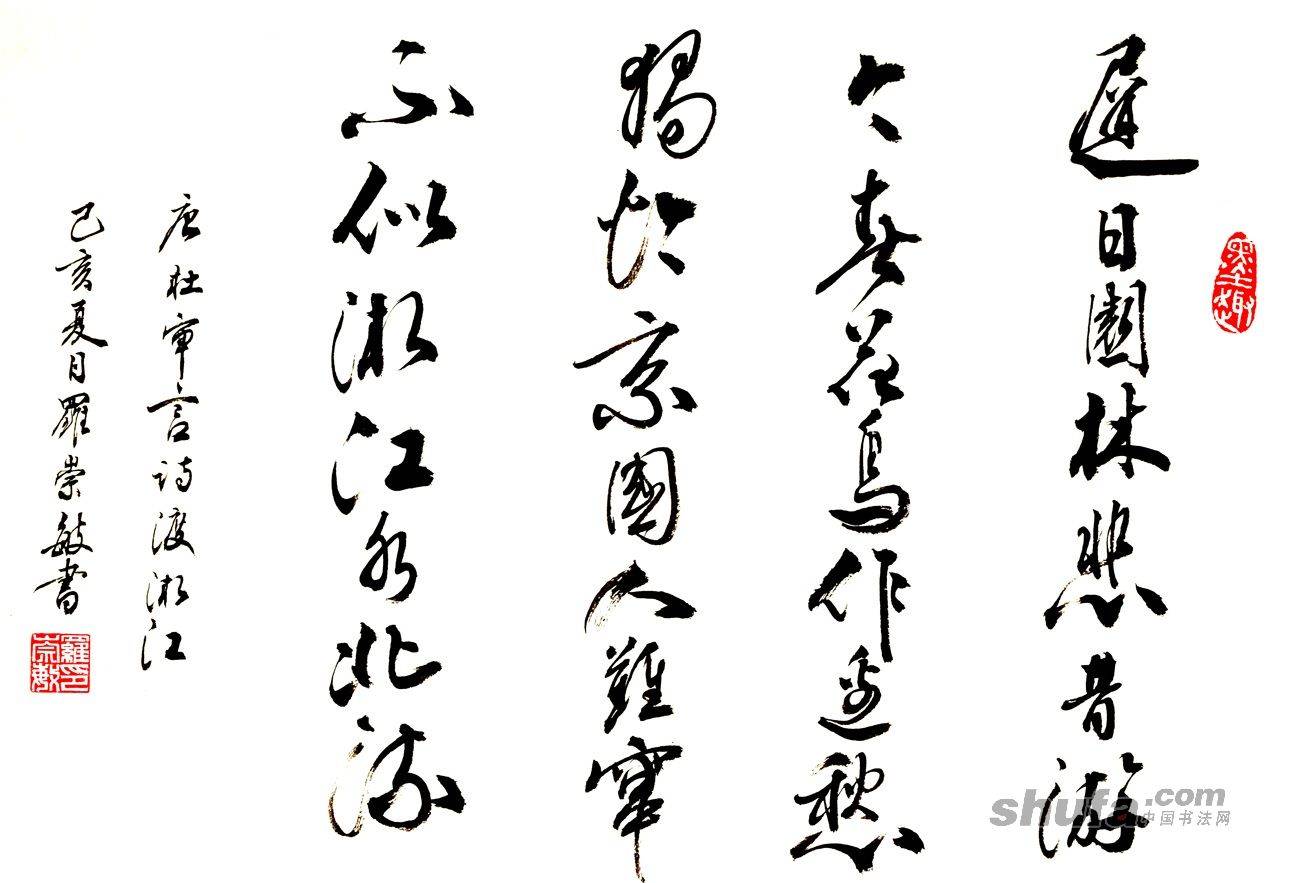 遲日園林悲昔游
今春花鳥作邊愁
獨怜京國人難窜
不似湘江水北流
唐杜审言詩渡湘江
己亥夏月羅崇敏書
墨趣
羅崇敏印
shufa.com
中国书法网